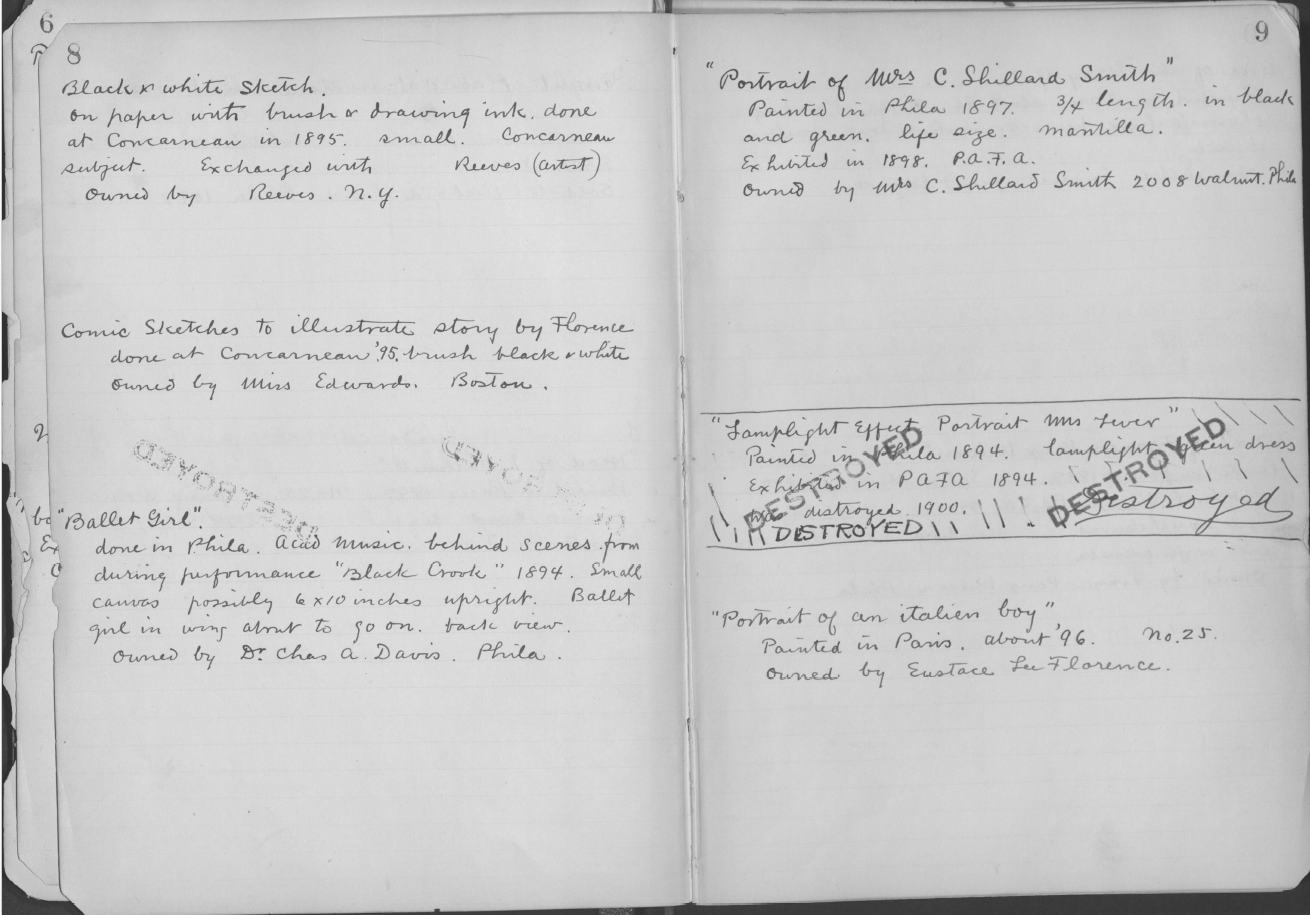 6
8
Black & white Sketch.
on paper with brush & drawing ink. done
at Concarneau in 1895. small. Concarneau
subject. Exchanged with Reeves (artist)
owned by Reeves. N.Y.
Comic Sketches to illustrate story by Florence
done at Concarneau '95. brush black & white
owned by Miss Edwards. Boston.
DESTROYED
"Ballet Girl".
done in Phila. Acad Music. behind scenes. from
during performance "Black Crook" 1894. Small
canvas possibly 6 x 10 inches upright. Ballet
girl in wing about to go on. back view.
owned by Dr. Chas A. Davis. Phila.
9
"Portrait of Mrs C. Shillard Smith"
Painted in Phila 1897. 3/4 length. in black
and green. life size. mantilla.
Exhibited in 1898. P.A.F.A.
owned by Mrs C. Shillard Smith 2008 Walnut. Phila
"Lamplight Effect Portrait Mrs Lever"
Painted in Phila 1894. lamplight green dress
Exhibited in PAFA 1894.
destroyed. 1900. Destroyed
DESTROYED
DESTROYED
DESTROYED
"Portrait of an italien boy"
Painted in Paris. about '96. No. 25.
owned by Eustace Lee Florence.